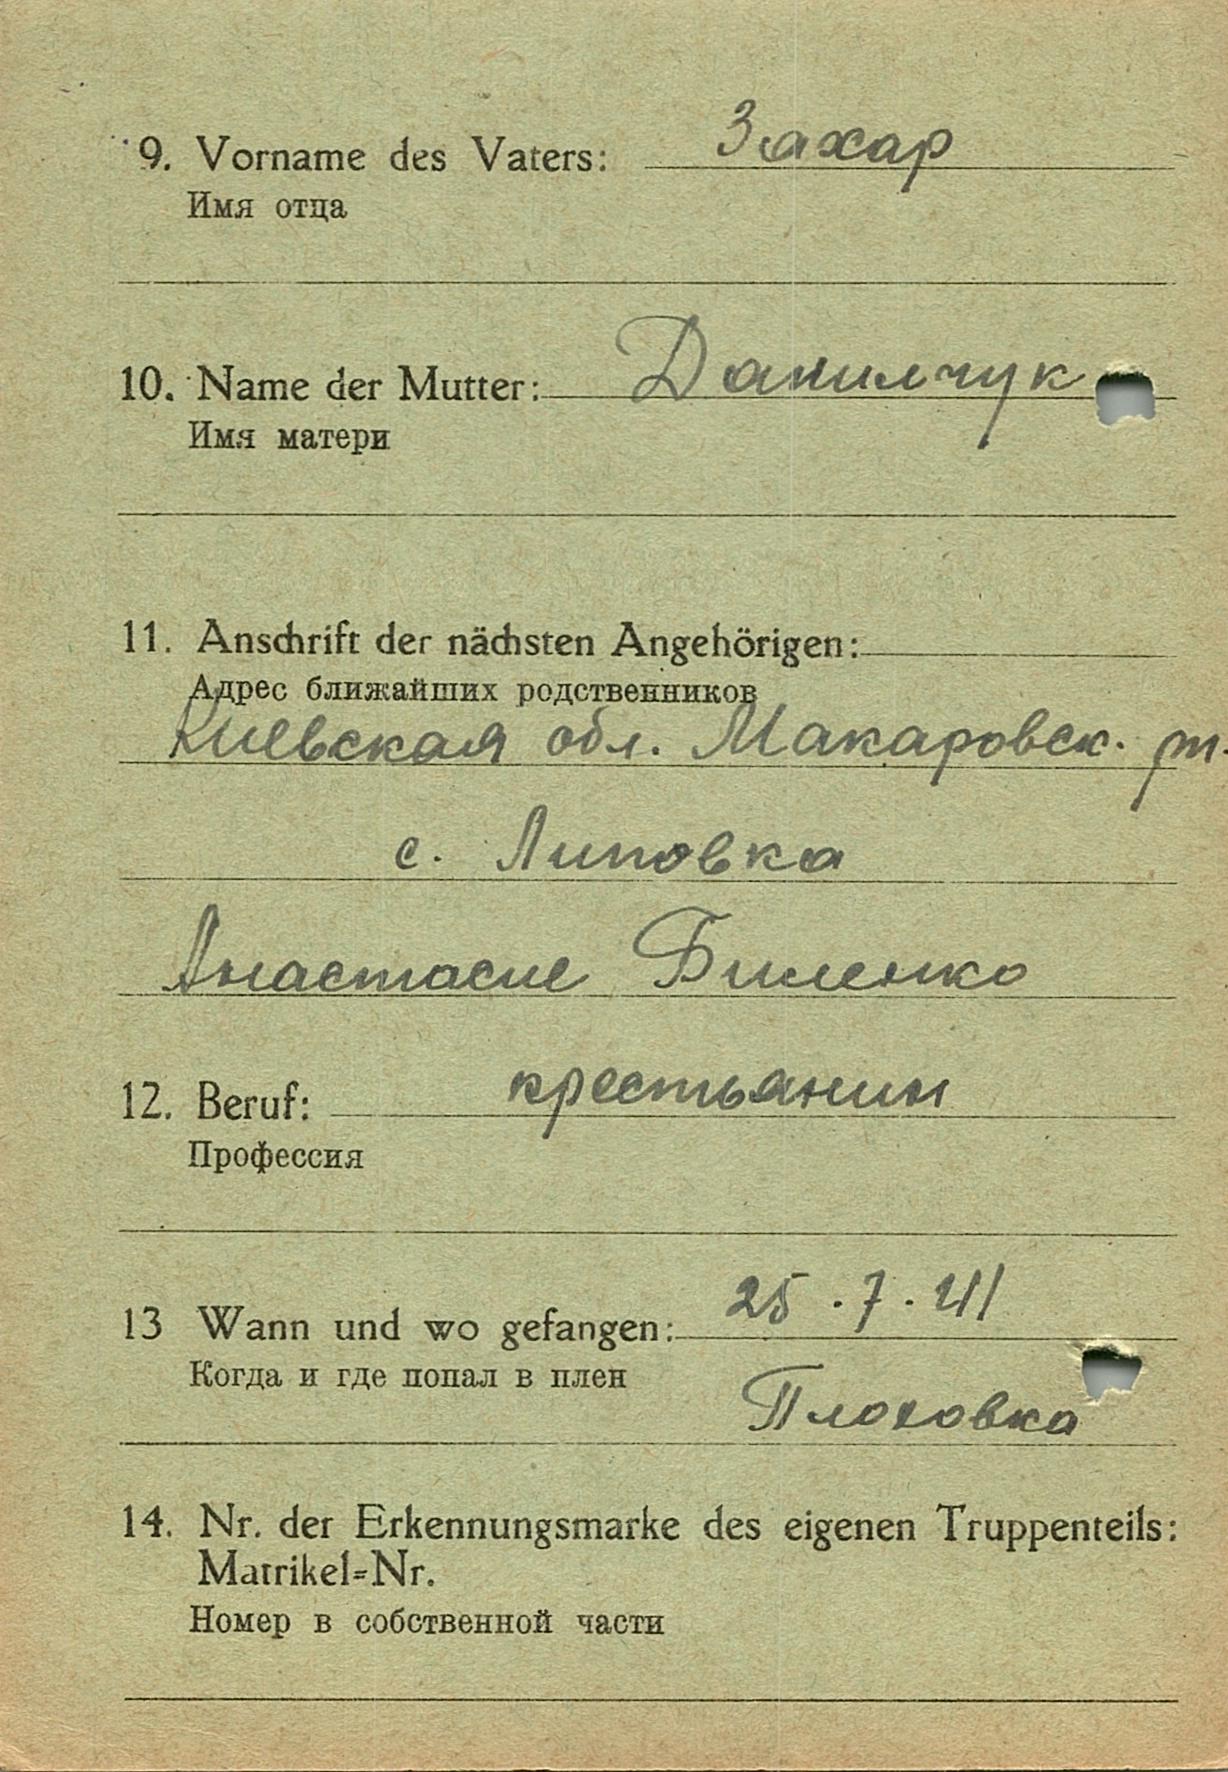 9. Vorname des Vaters: Захар
Имя отца
10. Name der Mutter: Данильчук
Имя матери
11. Anschrift der nächsten Angehörigen:
Адрес ближайших родственников
Киевская обл. Макаровск.
с. Липовка
Анастасие Биленко
12. Beruf: крестьянин
Профессия
13 Wann und wo gefangen: 25.7.41
Когда и где попал в плен
14. Nr. der Erkennungsmarke des eigenen Truppenteils:
Matrikel=Nr.
Номер в собственной части